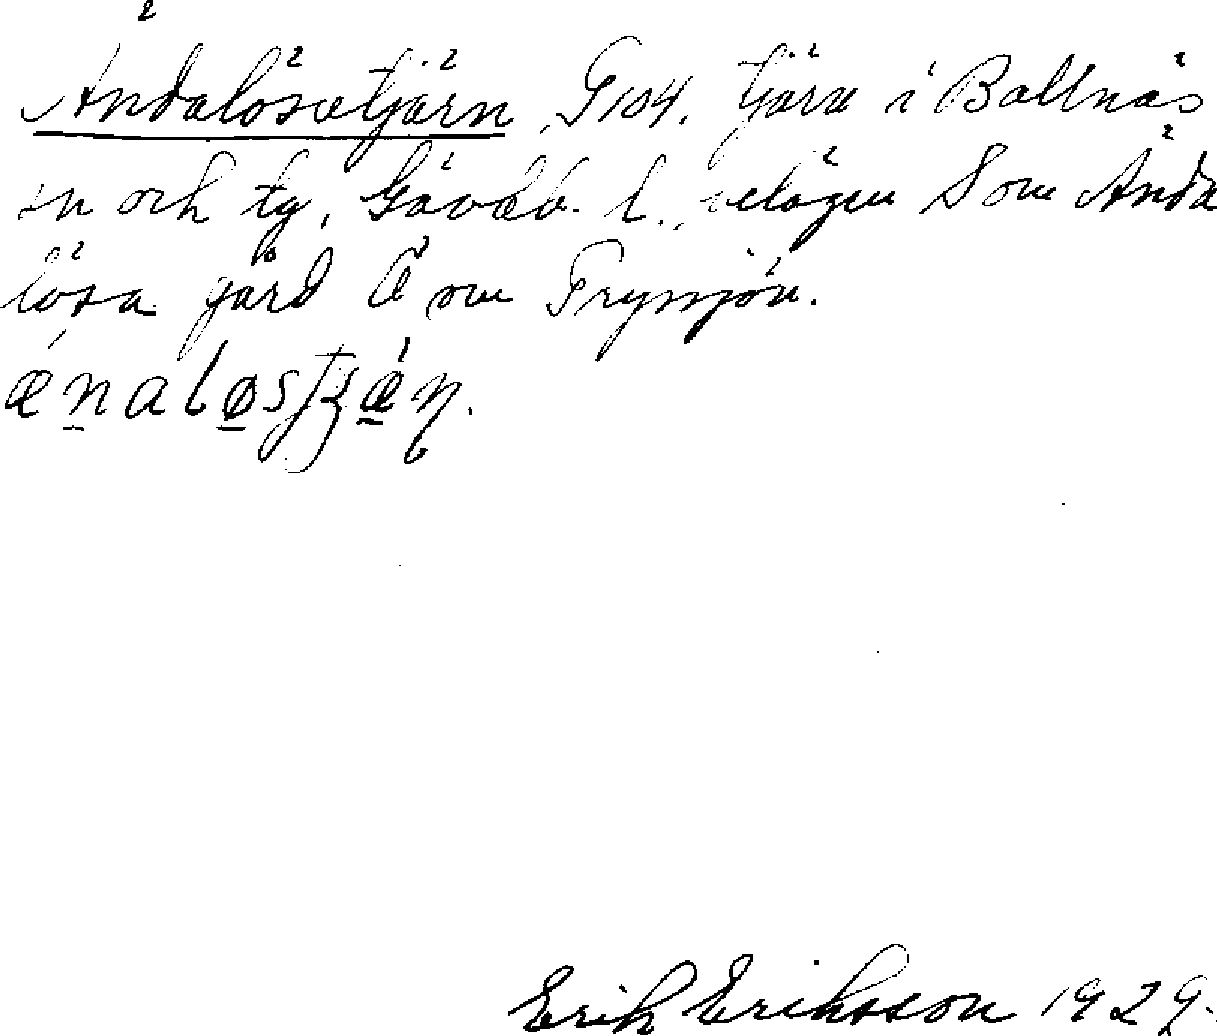 Ändalösatjärn, G 104. tjärn i Bollnäs
sn och tg, Gävleb. l., belägen S om Ända
lösa gård Ö om Frysjön.
ænaløstʒæɳ.
Erik Eriksson 1929.